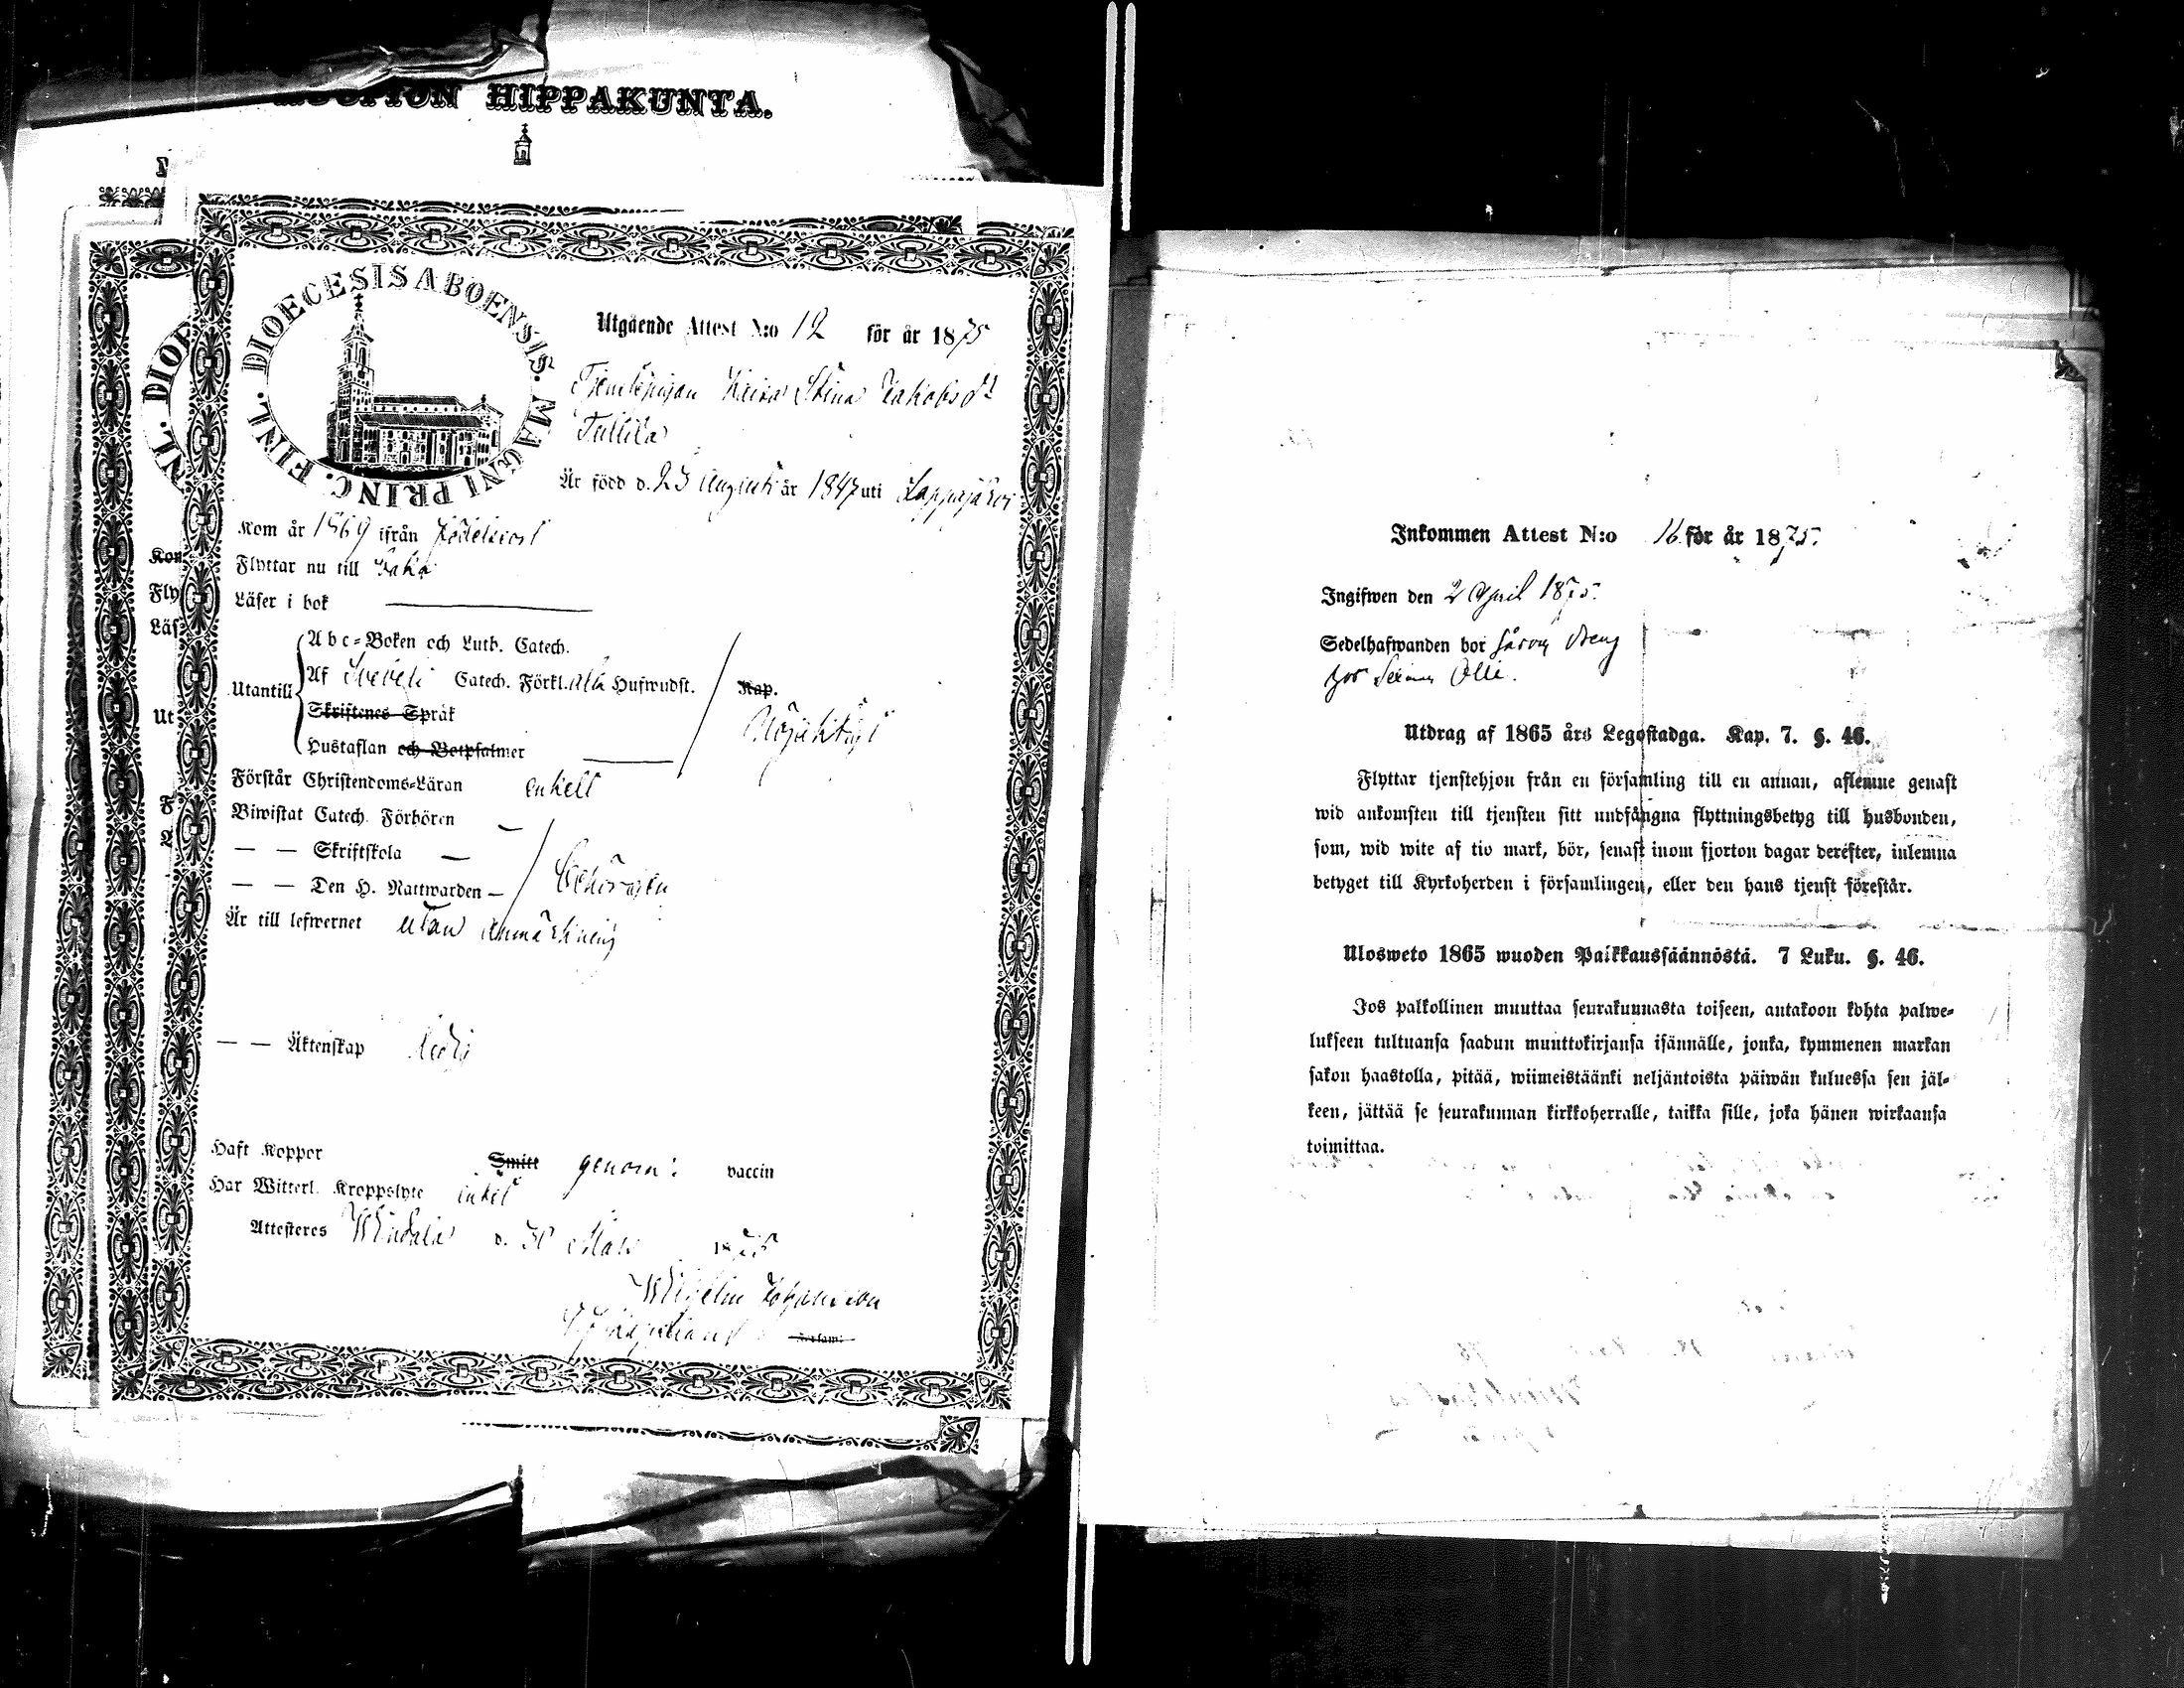 HIPPAKUNTA.
DIOECESIS ABOENSIS. MAGNI PRINC. FINL.
Utgående Attest N:o 12 för år 1875
Tjenstepigan Kaisa Stina Jakobsdr
Tullila
Är född d. 23 Augusti år 1847 uti Lappajärvi
Kom år 1869 ifrån födelseort
Flyttar nu till
Läser i bok
Utantill
Abc-Boken och Luth. Catech.
Af Svebeli Catech. Förkl. alla Hufwudst. Kap.
Skriftenes Språk
Nöjaktigt
Hustaflan och Botpsalmer
Förstår Christendoms-Läran enkelt
Biwistat Catech. Förhören —
— — Skriftskola —
— — Den H. Nattwarden —
behörigen
Är till lefwernet utan anmärkning
— — Äktenskap ledig
Haft Koppor Smitt genom: vaccin
Har Witterl. Kroppslyte intet
Attesteres Windala d. 30 Mars 1875
Wilhelm Johansson
Kon
Fly
Läs
Ut
Inkommen Attest N:o 16 för år 1875.
Ingifwen den 2 April 1875.
Sedelhafwanden bor såsom dreng
hos Olli.
Utdrag af 1865 års Legostadga. Kap. 7. §. 46.
Flyttar tjenstehjon från en församling till en annan, aflemne genast
wid ankomsten till tjensten sitt undfångna flyttningsbetyg till husbonden,
som, wid wite af tio mark, bör, senast inom fjorton dagar derefter, inlemna
betyget till Kyrkoherden i församlingen, eller den hans tjenst förestår.
Ulosweto 1865 wuoden Palkkaussäännöstä. 7 Luku. §. 46.
Jos palkollinen muuttaa seurakunnasta toiseen, antakoon kohta palwe-
lukseen tultuansa saadun muuttokirjansa isännälle, jonka, kymmenen markan
sakon haastolla, pitää, wiimeistäänki neljäntoista päiwän kuluessa sen jäl-
keen, jättää se seurakunnan kirkkoherralle, taikka sille, joka hänen wirkaansa
toimittaa.